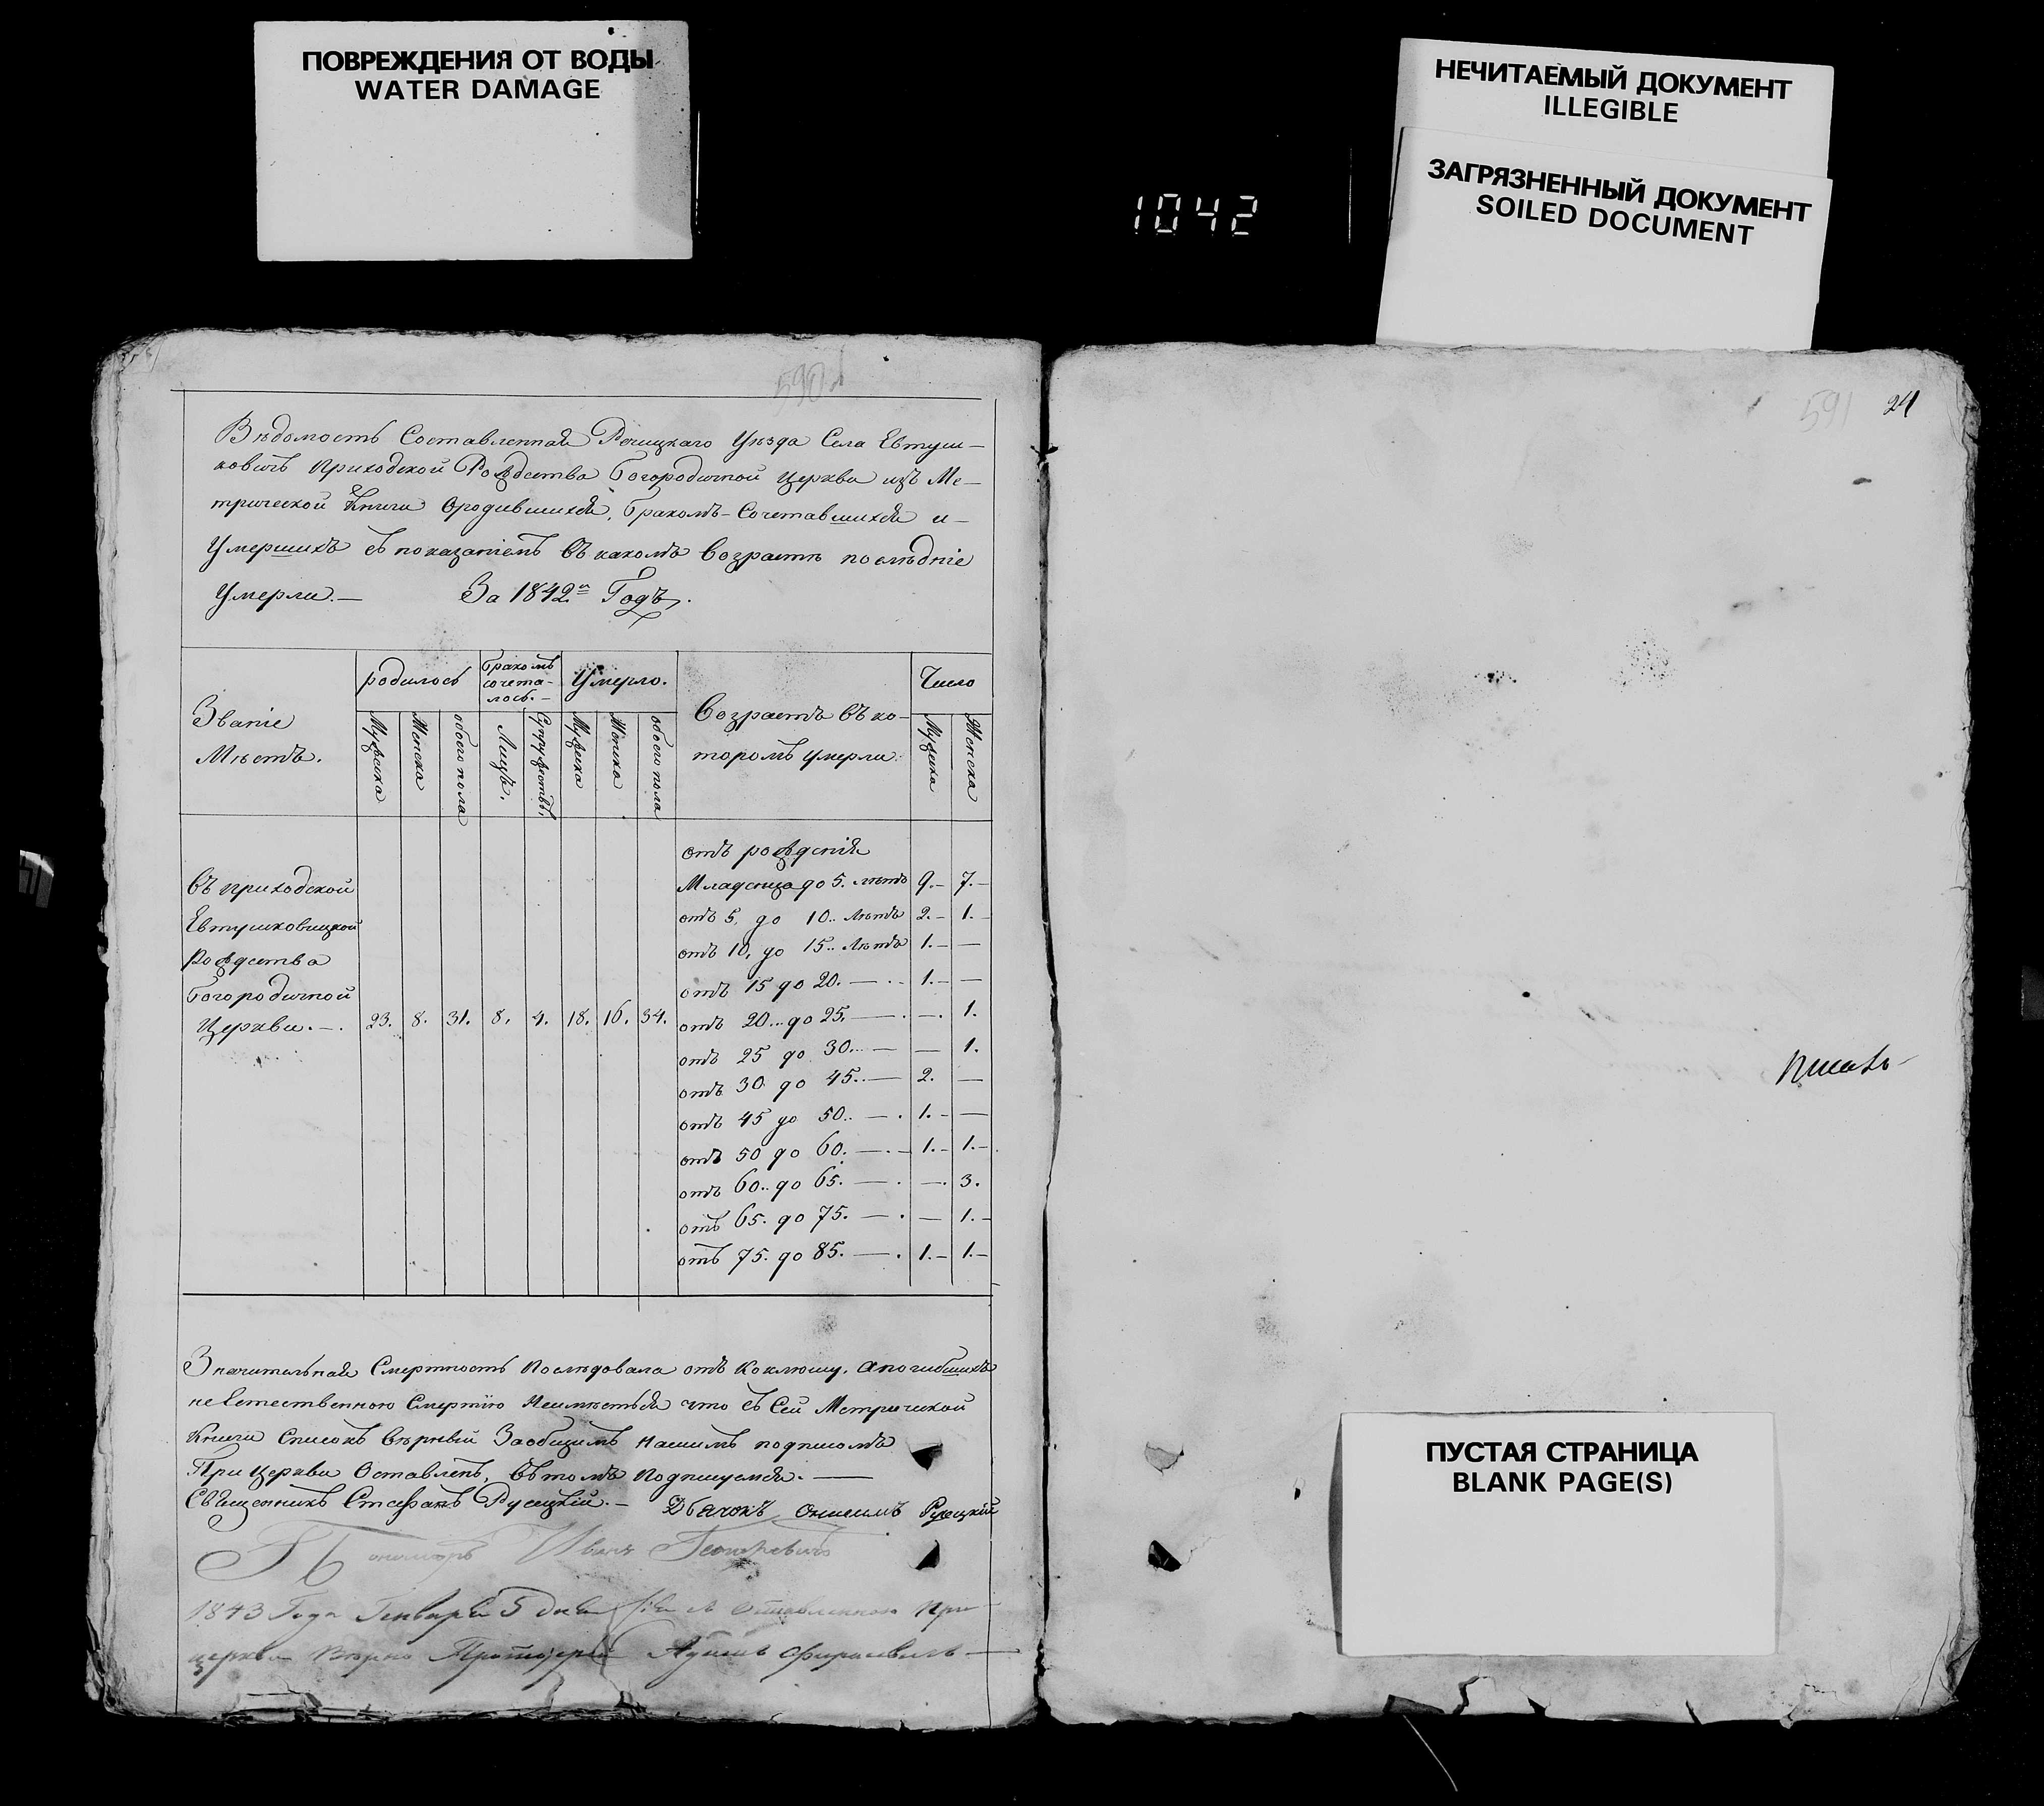 ПОВРЕЖДЕНИЯ ОТ ВОДЫ
WATER DAMAGE
НЕЧИТАЕМЫЙ ДОКУМЕНТ
ILLEGIBLE
ЗАГРЯЗНЕННЫЙ ДОКУМЕНТ
SOILED DOCUMENT
1042
590
Вѣдомость Составленная Речицкаго Уѣзда Села Евтуш-
ковичъ приходской Рождества Богородичной Церкви изъ Ме-
трической Книги Ородившихся, Бракомъ-Сочетавшихся и-
Умершихъ съ показаніемъ Въ какомъ Возрастѣ послѣдніе
Умерли.— За 1842й Годъ.
Званіе Мѣстъ.
родилось
Бракомъ сочета-лось.—
Умерло.
Возрастъ Въ ко-торомъ умерли
Число
Мужска Женска обоего пола Лицъ. Супружествъ. Мужска Женска обоего пола Мужска Женска
Въ приходской
Евтушковицкой
Рождества
Богородичной
Церкви.—. 23. 8. 31. 8. 4. 18. 16. 34.
отъ рожденія
Младенца до 5. лѣтъ 9.— 7.—
отъ 5. до 10.. Лѣтъ 2.— 1.—
отъ 10, до 15.. Лѣтъ 1.— —
отъ 15 до 20. — 1.— —
отъ 20... до 25. — —. 1.
отъ 25 до 30... — — 1.
отъ 30. до 45.. — 2. —
отъ 45 до 50.. — 1.— —
отъ 50 до 60. — 1.— 1.—
отъ 60.. до 65. — —. 3.
отъ 65. до 75. — — 1.—
отъ 75. до 85. — 1.— 1.—
Значительная Смертность послѣдовала отъ Коклюшу, апогибшихъ
не Естественною Смертію Неимѣетъся что съ Сей Метрической
Книги Списокъ Вѣрный Заобщимъ нашимъ подписомъ
При Церкви Оставленъ, Въ томъ Подписуемся. —
Священникъ Стефанъ Русецкій.— Дьячокъ Онисимъ Русецкій
Пономарь Иванъ
1843 Года Генваря 5 дня оставленною При
церкви Вѣрно Протоіерей
591 24
ПУСТАЯ СТРАНИЦА
BLANK PAGE(S)